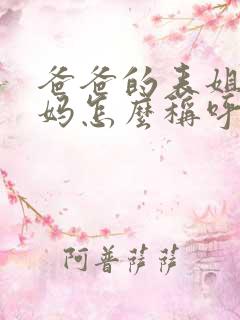 爸爸的表姐
妈怎麼稱呼
阿普薩薩